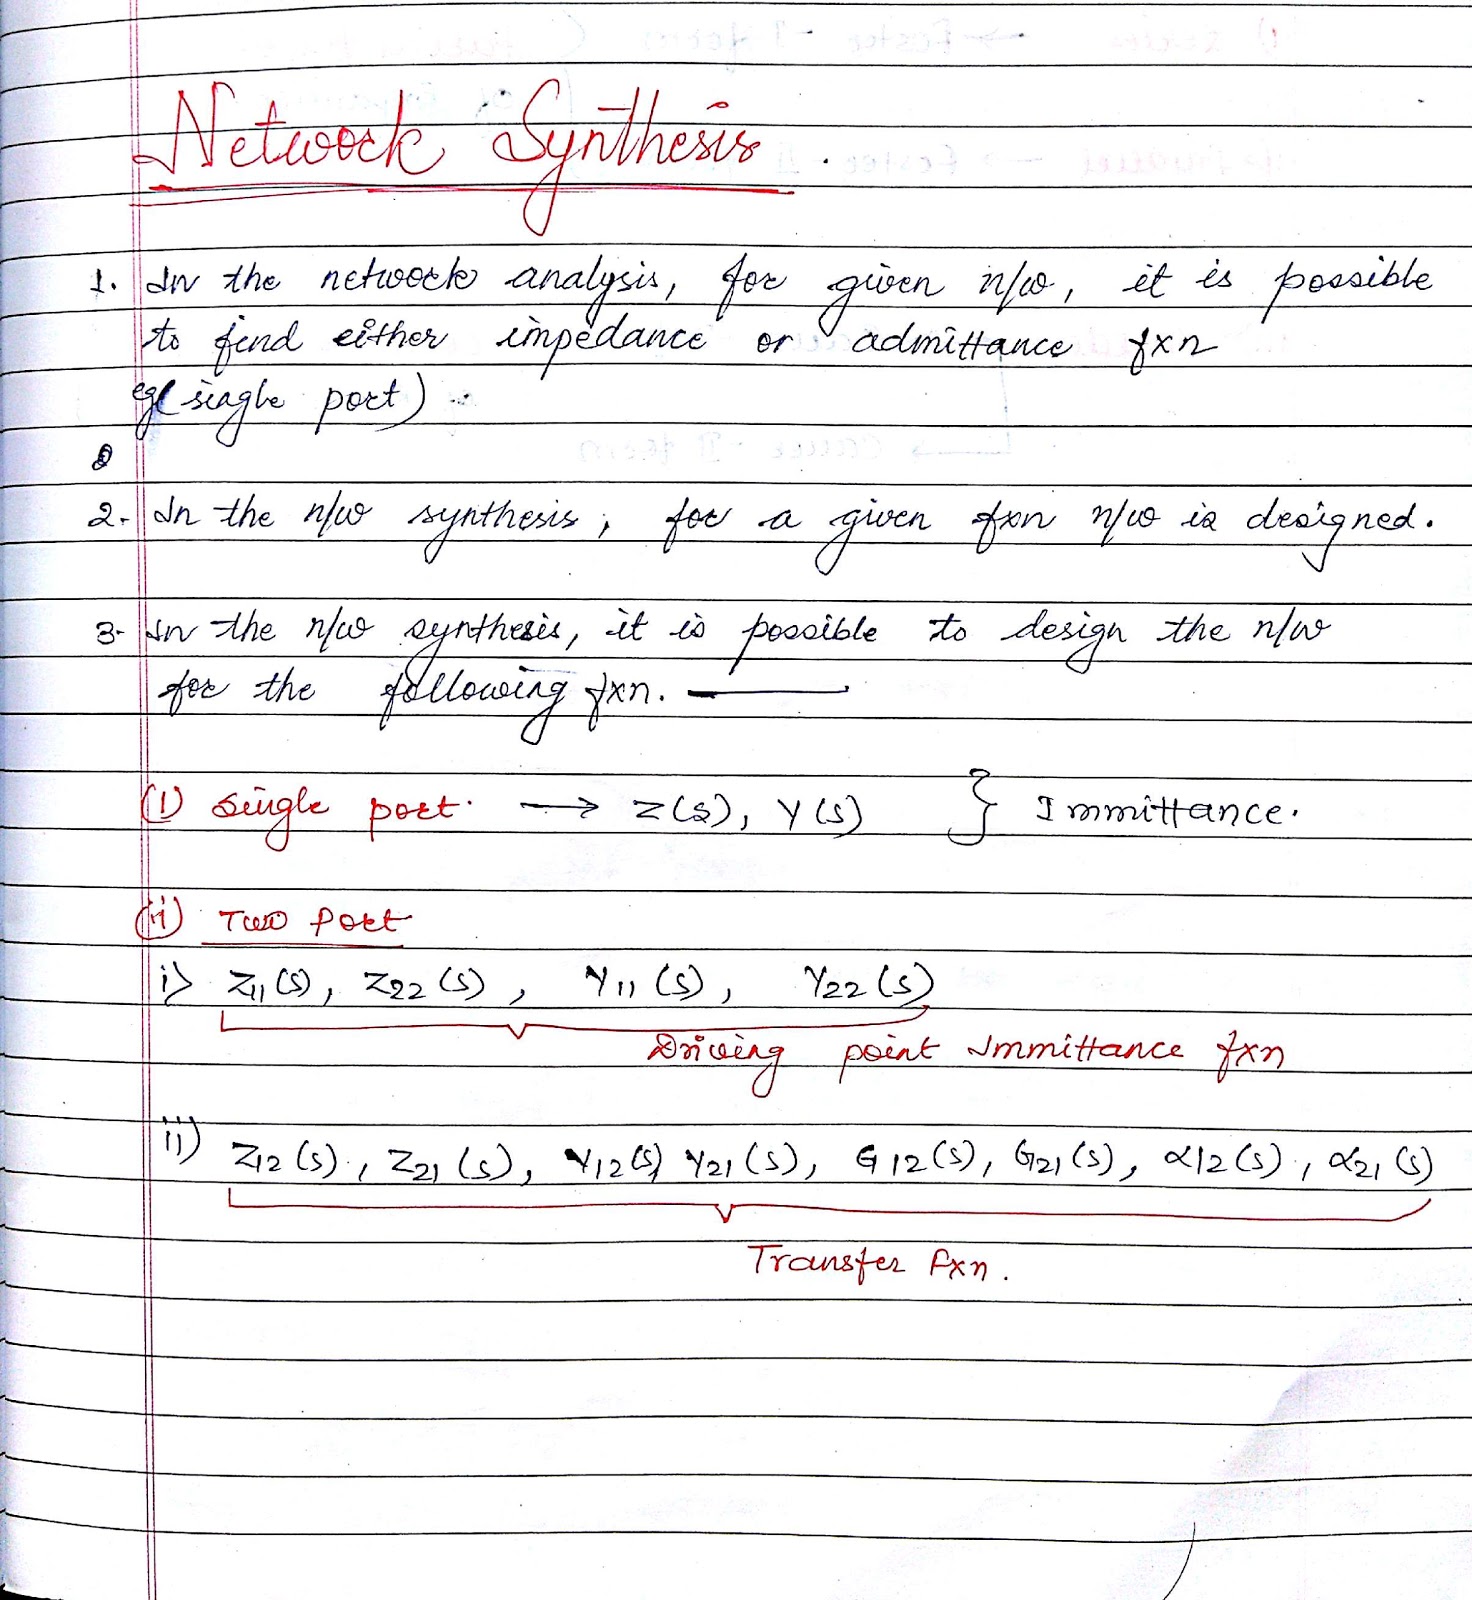 Network Synthesis
1. In the network analysis, for given n/w, it is possible
to find either impedance or admittance fxn
eg (single port)
2. In the n/w synthesis, for a given fxn n/w is designed.
3. In the n/w synthesis, it is possible to design the n/w
for the following fxn. —
(i) Single port. → Z(s), Y(s) } Immittance.
(ii) Two Port
i) Z11(s), Z22(s), Y11(s), Y22(s)
Driving point Immittance fxn
ii) Z12(s), Z21(s), Y12(s) Y21(s), G12(s), G21(s), α12(s), α21(s)
Transfer fxn.